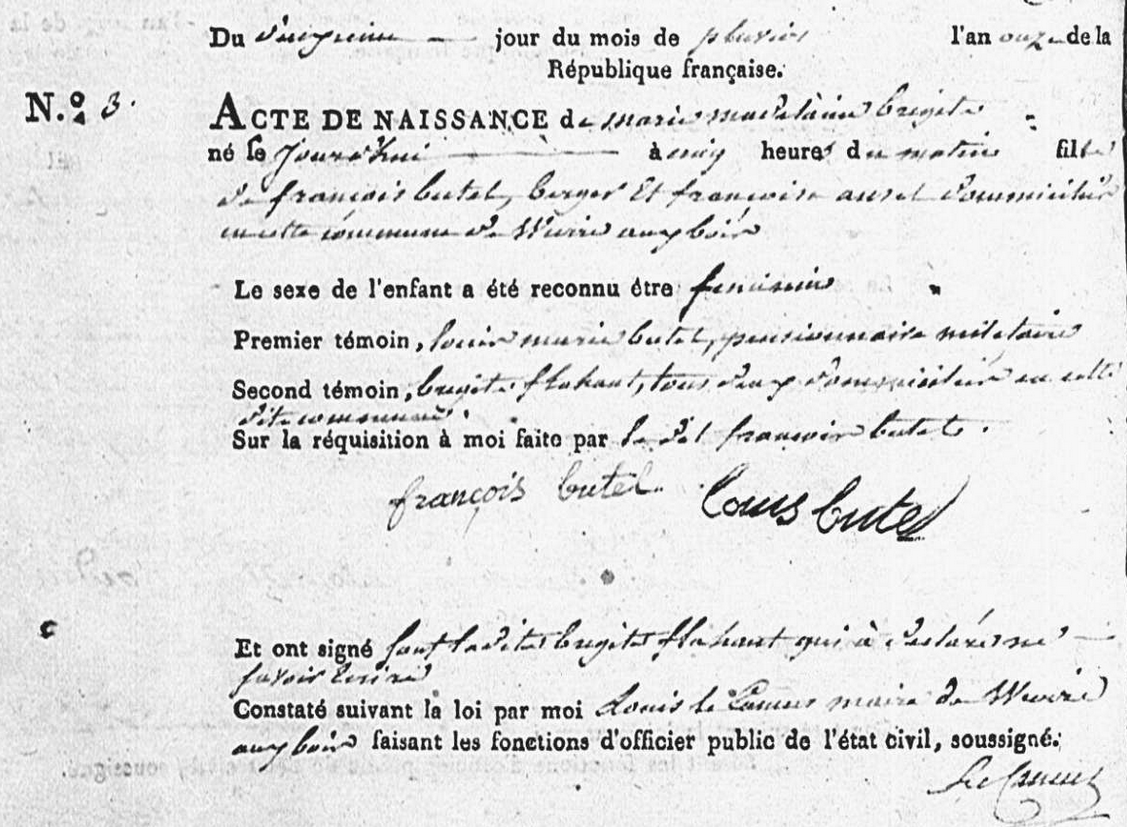 Du deuxieme jour du mois de pluvios l'an onze de la
République française.
N.º 3. ACTE DE NAISSANCE de marie madelaine brigite
né le Jourd'hui à cinq heures du matin fille
de françois butel, berger Et françoise ansel Dommiciliés
en cette commune de Wierre aux bois
Le sexe de l'enfant a été reconnu être feminin
Premier témoin, louis marie butel, pensionnaire militaire
Second témoin, brigite flahaut, tous deux Dommiciliés en cette
dite commune.
Sur la réquisition à moi faite par le dit françois butel.
françois butel louis butel
Et ont signé sauf ladite brigite flahaut qui à declaré ne
savoir Ecrire
Constaté suivant la loi par moi Louis le Camus maire de Wierre
aux bois faisant les fonctions d'officier public de l'état civil, soussigné.
Le Camus